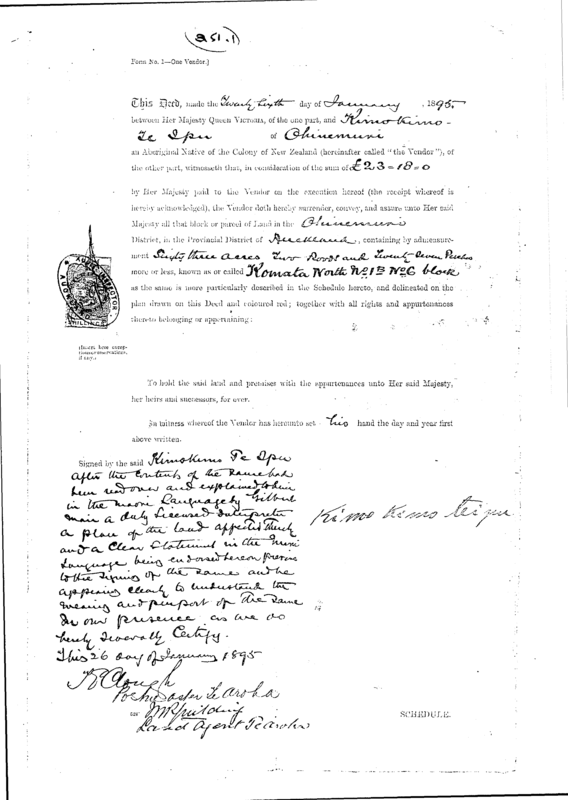 (251.1)
Form No. 1—One Vendor.]
This Deed, made the Twenty Sixth day of January, 1895
between Her Majesty Queen Victoria, of the one part, and Kimokimo-
Te Ipu of Ohinemuri
an Aboriginal Native of the Colony of New Zealand (hereinafter called "the Vendor"), of
the other part, witnesseth that, in consideration of the sum of £23=18=0
by Her Majesty paid to the Vendor on the execution hereof (the receipt whereof is
hereby acknowledged), the Vendor doth hereby surrender, convey, and assure unto Her said
Majesty all that block or parcel of Land in the Ohinemuri
District, in the Provincial District of Auckland, containing by admeasure-
ment Sixty three acres Two Roods and Twenty Seven Perches
more or less, known as or called Komata North No1B No6 block
as the same is more particularly described in the Schedule hereto, and delineated on the
plan drawn on this Deed and coloured red; together with all rights and appurtenances
thereto belonging or appertaining:
(Insert here excep-
tions or reservations,
if any.)
To hold the said land and premises with the appurtenances unto Her said Majesty,
her heirs and successors, for ever.
In witness whereof the Vendor has hereunto set his hand the day and year first
above written.
Signed by the said Kimokimo Te Ipu
after the Contents of the same had
been read over and explained to him
in the Maori Language by Gilbert
Mair a duly Licensed Interpreter
a plan of the land affected thereby
and a Clear Statement in the Maori
Language being endorsed hereon previous
to the signing of the same and he
appearing clearly to understand the
meaning and purport of the same
In our presence as we do
hereby severally Certify.
This 26 day of January 1895
Kimo Kimo te ipu
Clough
Postmaster Te Aroha
Land Agent Te Aroha
SCHEDULE.